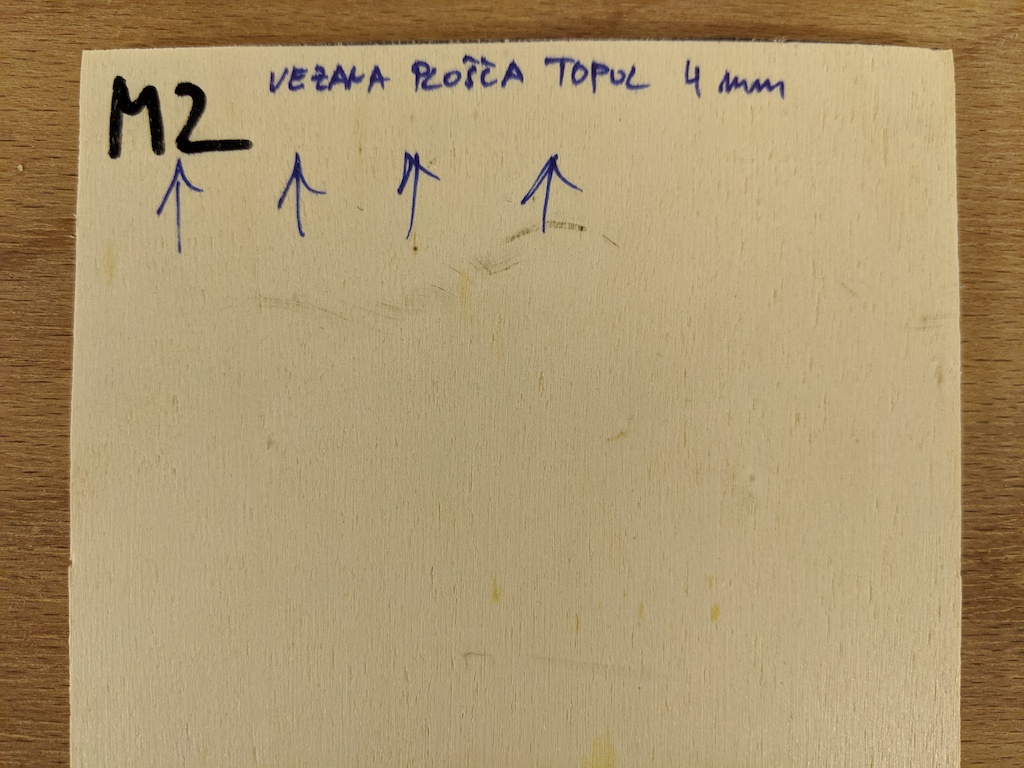 VEZANA PLOŠČA TOPOL 4 mm
M2